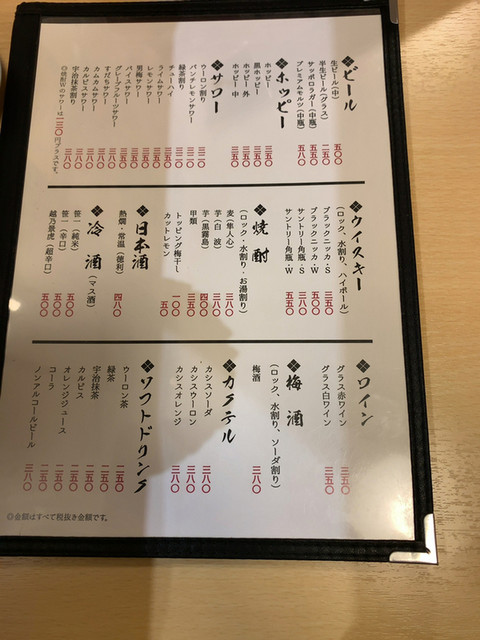 ビール
生ビール(中) 五〇〇
半生ビール(グラス) 二五〇
サッポロラガー(中瓶) 五五〇
プレミアムモルツ(中瓶) 五八〇
ホッピー
ホッピー 三五〇
黒ホッピー 三五〇
ホッピー 外
ホッピー 中
サワー
ウーロン割り 三二〇
パンチレモンサワー 三二〇
緑茶割り
チューハイ
ライムサワー
レモンサワー
男梅サワー
バイスサワー
グレープフルーツサワー
すだちサワー
カムカムサワー
カルピスサワー
宇治抹茶割り
◎焼酎Wのサワーは一三〇円プラスです。
ウイスキー
(ロック、水割り、ハイボール)
ブラックニッカ・S 三五〇
ブラックニッカ・W 五〇〇
サントリー角瓶・S 三八〇
サントリー角瓶・W 五五〇
焼酎
(ロック・水割り・お湯割り)
麦(隼人心) 三八〇
芋(白波) 三八〇
芋(黒霧島) 四〇〇
甲類 三五〇
トッピング梅干し 一〇〇
カットレモン 五〇
日本酒
熱燗・常温(徳利) 四八〇
冷酒(マス酒)
笹一(純米) 五〇〇
笹一(辛口) 五〇〇
越乃景虎(超辛口) 五五〇
ワイン
グラス赤ワイン 三五〇
グラス白ワイン 三五〇
梅酒
(ロック、水割り、ソーダ割り)
梅酒 三八〇
カクテル
カシスソーダ 三八〇
カシスウーロン 三八〇
カシスオレンジ 三八〇
ソフトドリンク
ウーロン茶 二五〇
緑茶 二五〇
宇治抹茶 二五〇
カルピス 二五〇
オレンジジュース 二五〇
コーラ 二五〇
ノンアルコールビール 三八〇
◎金額はすべて税抜き金額です。